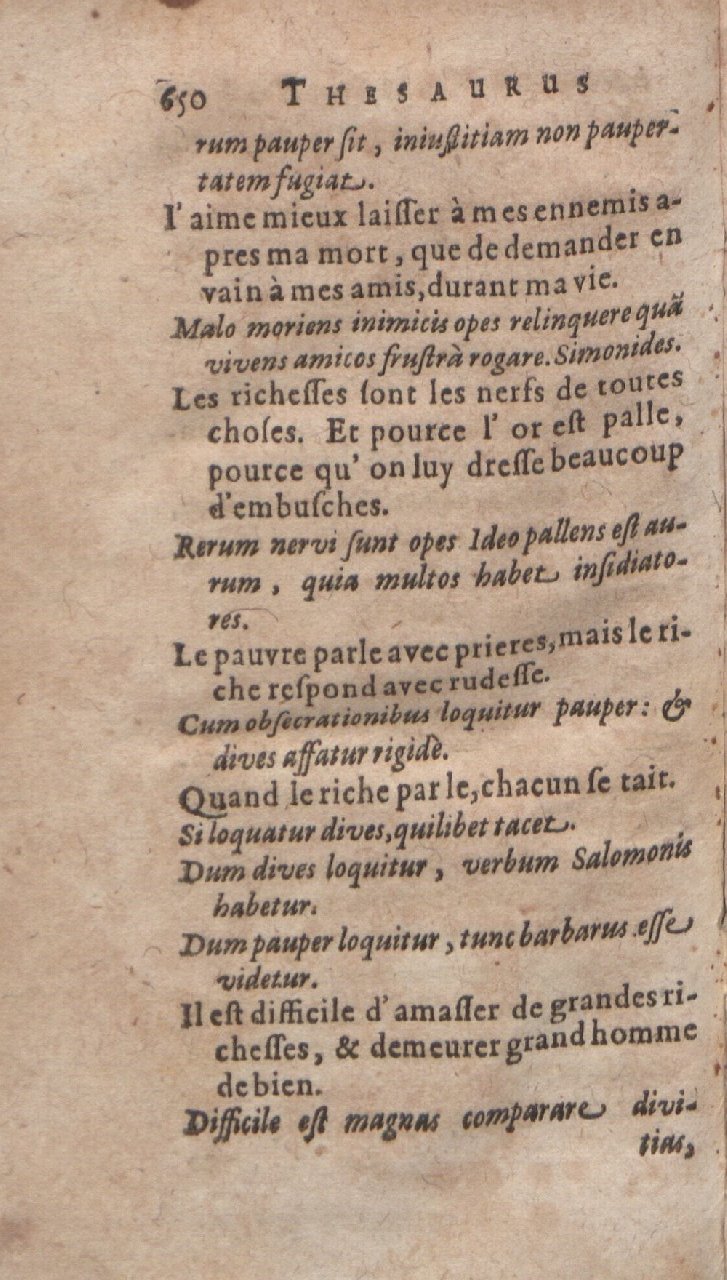 650 THESAURUS
rum pauper sit, iniustitiam non pauper-
tatem fugiat.
I' aime mieux laisser à mes ennemis a-
pres ma mort, que de demander en
vain à mes amis, durant ma vie.
Malo moriens inimicis opes relinquere quã
vivens amicos frustrà rogare. Simonides.
Les richesses sont les nerfs de toutes
choses. Et pource l' or est palle,
pource qu' on luy dresse beaucoup
d'embusches.
Rerum nervi sunt opes Ideo pallens est au-
rum, quia multos habet insidiato-
res.
Le pauvre parle avec prieres, mais le ri-
che respond avec rudesse.
Cum obsecrationibus loquitur pauper: &
dives affatur rigidè.
Quand le riche parle, chacun se tait.
Si loquatur dives, quilibet tacet.
Dum dives loquitur, verbum Salomonis
habetur.
Dum pauper loquitur, tunc barbarus esse
videtur.
Il est difficile d' amasser de grandes ri-
chesses, & demeurer grand homme
de bien.
Difficile est magnas comparare divi-
tias,